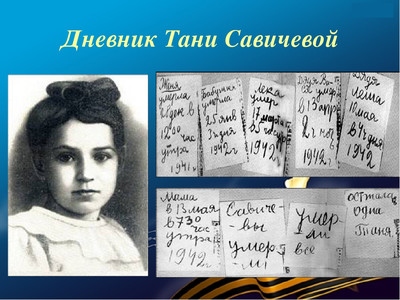 Дневник Тани Савичевой
Женя
умерла
28 дек в
12 00 час
утра
1941 г
Бабушка
умерла
25 янв
3 ч дня
1942 г
Лека
умер
17 марта
1942 г
Дядя
умер
в 13 апр
2 ч
1942 г
Дядя
Леша
10 мая
в 4 ч дня
1942
Мама
в 13 мая
в 7 30
час
утра
1942 г
Савиче-
-вы
умер-
-ли
умер-
ли
все
Осталась
одна
Таня